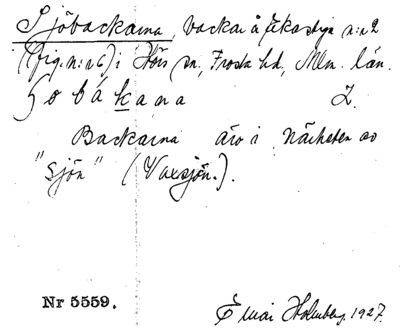 Sjöbackarna, backar å fikastyn n:r 2
(fig. n:r 6) i Hörs sn, Frosta hd, Mlm. län.
So bá kana 2.
Backarna äro i närheten av
"Sjön" (Vaxsjön.).
Nr 5559.
Emai Holmberg. 1927.